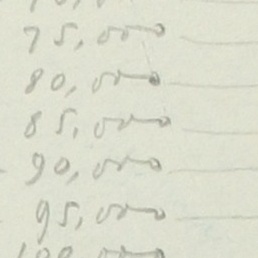 75,000
80,000
85,000
90,000
95,000
100,000